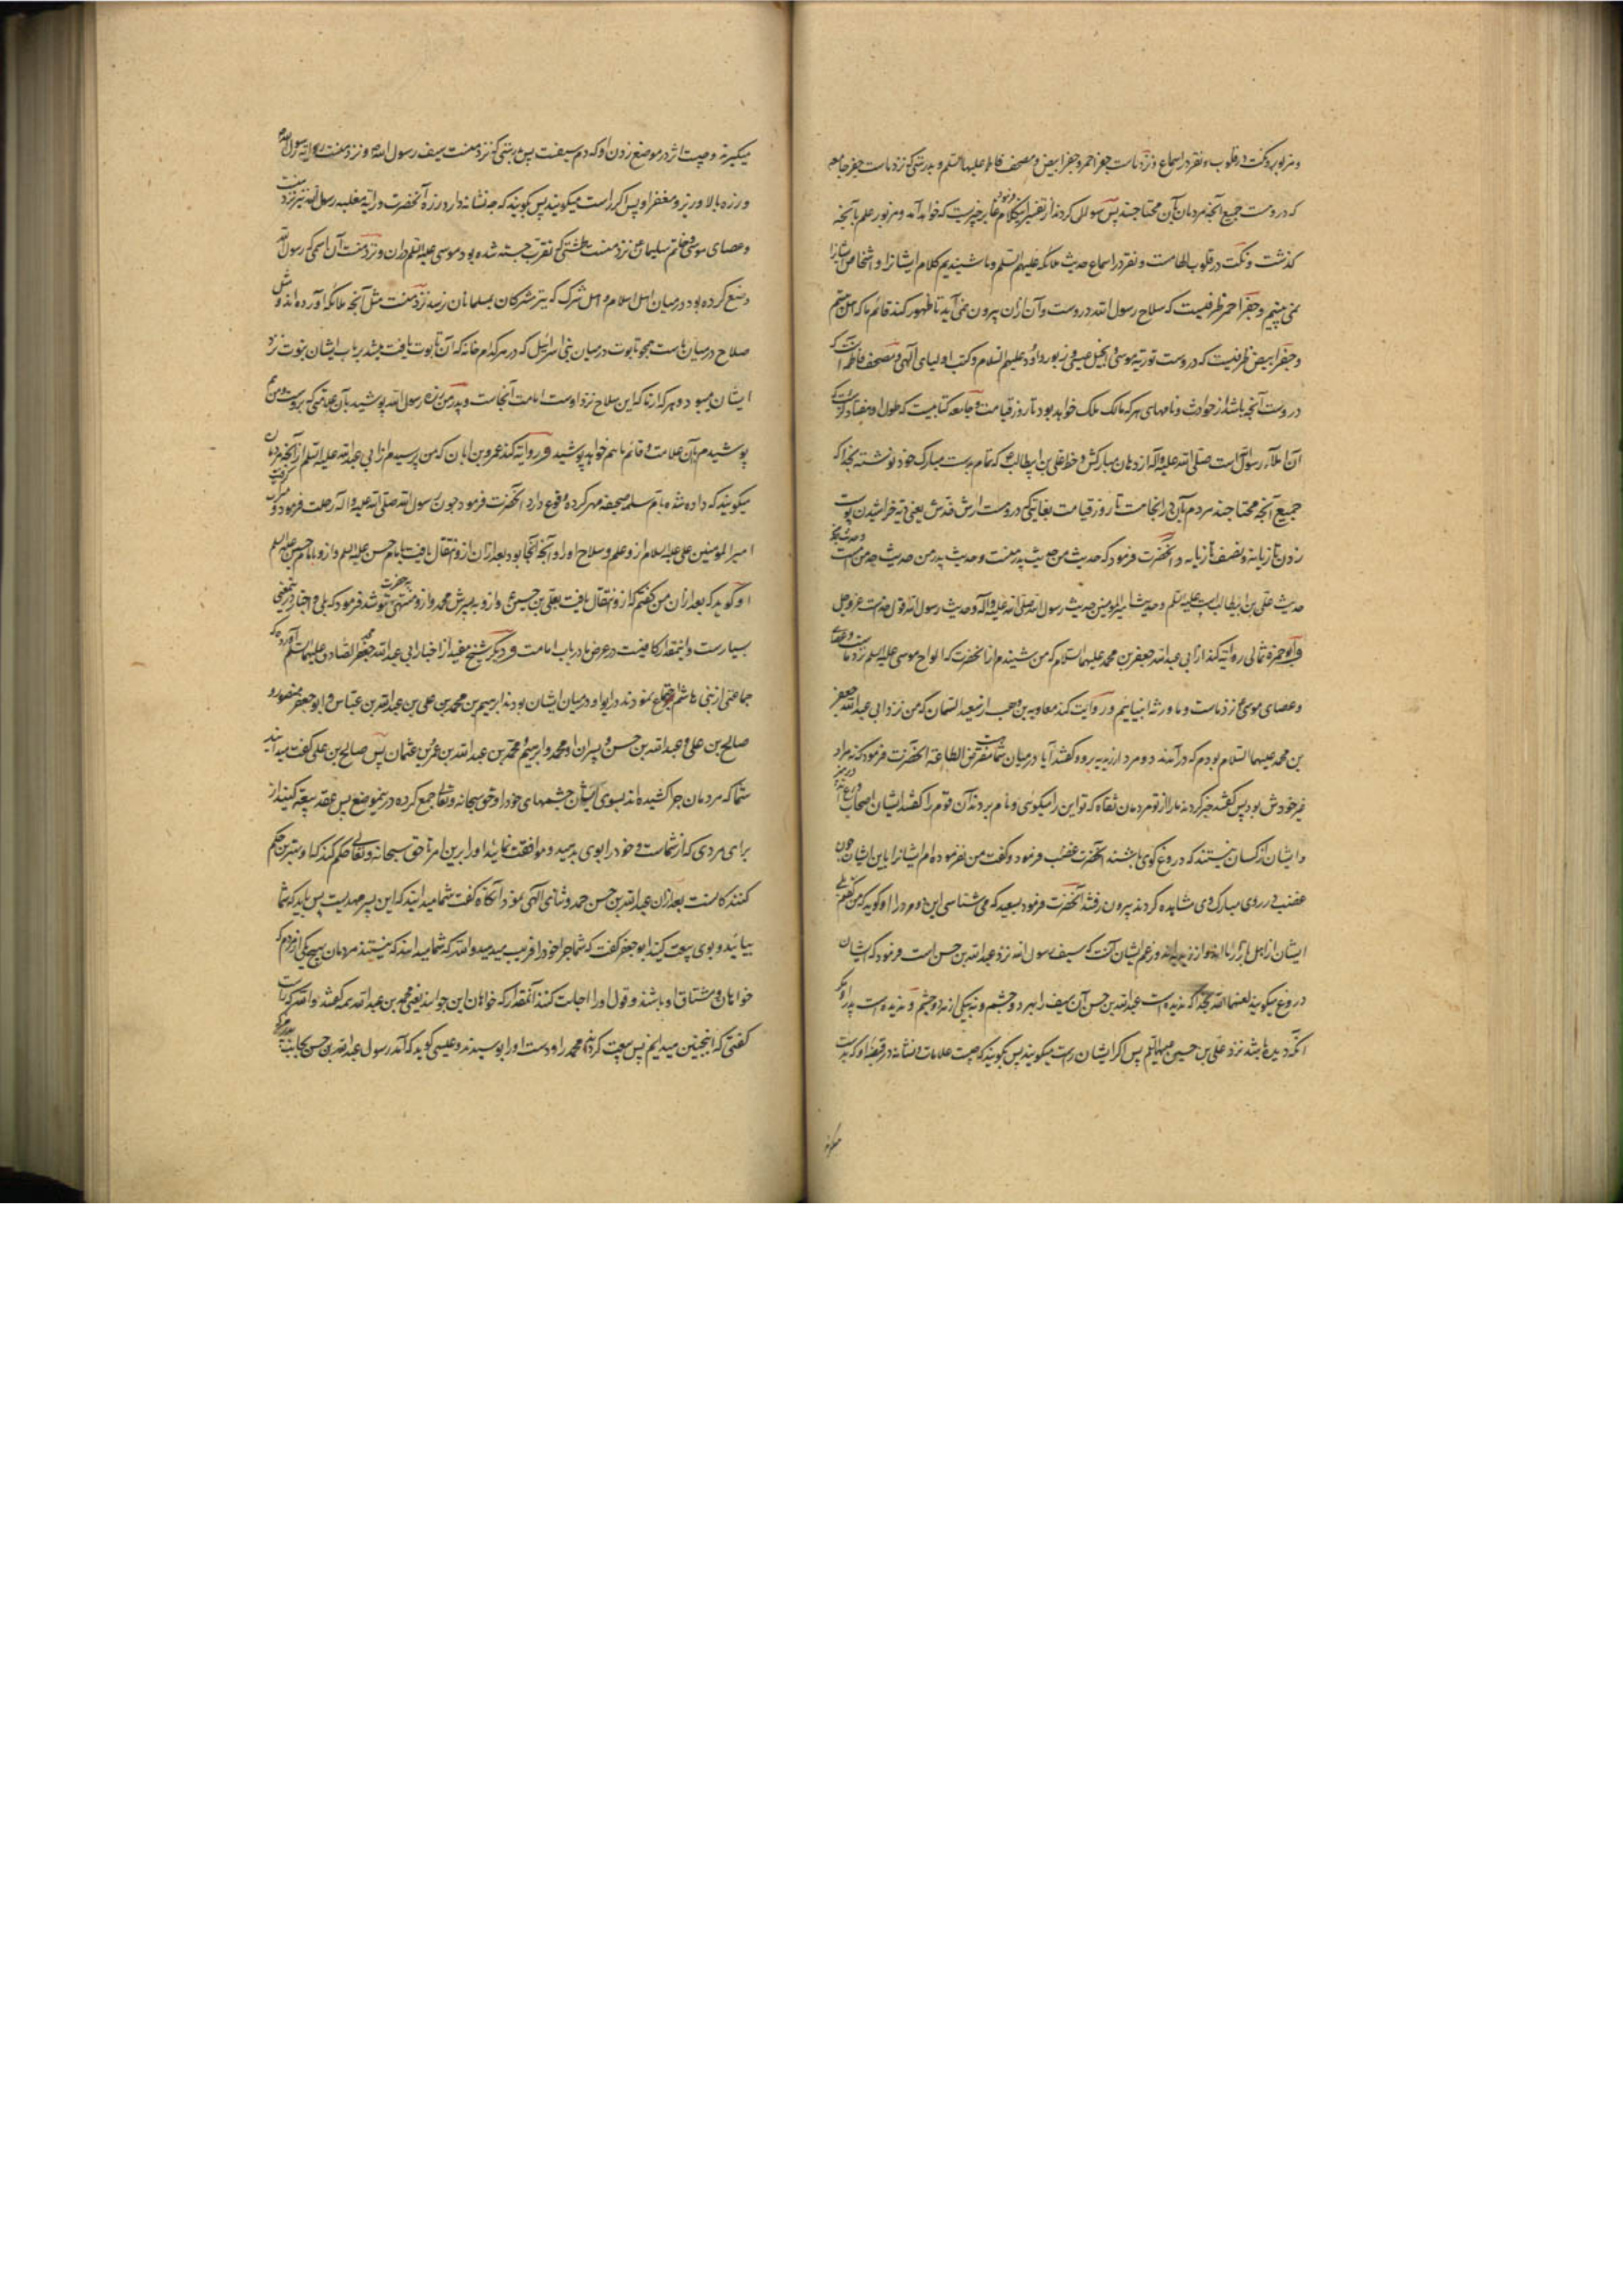 و مزبور و نکت در قلوب و نقر در اسماع و نزد ماست جفر احمر و جفر ابیض و مصحف فاطمه علیها السلم و بدرستی که نزد ماست جفر جامعه
که دروست جمیع آنچه مردمان بآن محتاجند پس سوال کردند از تفسیر این کلام فرمود غابر چیزیست که خواهد آمد و مزبور علم بآنچه
گذشت و نکت در قلوب الهامست و نقر در اسماع حدیث ملائکه علیهم السلم و ما شنیدیم کلام ایشانرا و اشخاص ایشانرا
نمی بینیم و جفر احمر ظرفیست که سلاح رسول الله دروست و آن ازان بیرون نمی آید تا ظهور کند قائم ما که اهل بیتیم
و جفر ابیض ظرفیست که دروست توریة موسی و انجیل عیسی و زبور داود علیهم السلام و کتب اولیای الهی و مصحف فاطمه آنست که
دروست آنچه باشد از حوادث و نامهای هر که مالک ملک خواهد بود تا روز قیامت و جامعه کتابیست که طول او هفتاد ذراعست که
آن املاء رسول الله است صلی الله علیه و اله از دهان مبارکش و خط علی بن ابیطالب ع که تمام بدست مبارک خود نوشته بخدا که
جمیع آنچه محتاجند مردم بآن در انجاست تا روز قیامت بغایتیکه دروست ارش خدش یعنی دیه خراشیدن پوست
زدن تازیانه و نصف تازیانه و آنحضرت فرمود که حدیث من حدیث پدر منست و حدیث پدر من حدیث جد من است و حدیث جد
حدیث علی بن ابیطالب است علیه السلم و حدیث امیر المومنین حدیث رسول الله صلی الله علیه و اله و حدیث رسول الله قول خداست عز و جل
و ابو حمزه ثمالی روایة کند از ابی عبد الله جعفر بن محمد علیهما السلام که من شنیدم از انحضرت که الواح موسی علیه السلم نزد ماست و عصای
و عصای موسی نزد ماست و ما ورثه انبیائیم و روایت کند معاویه بن وهب از سعید السمان که من نزد ابی عبد الله جعفر
بن محمد علیهما السلام بودم که در آمدند دو مرد از زیدیه برو و گفتند آیا در میان شما هست مفترض الطاعة انحضرت فرمود که نه مراد
غیر خودش بود پس گفتند خبر کردند ما را از تو مردمان ثقاة که تو این را میگوئی و نام بردند آن قوم را گفتند ایشان اصحاب ورع اند
و ایشان از کسان نیستند که دروغ گوی باشند آنحضرت غضب فرمود و گفت من نفرموده ام ایشانرا باین ایشان چون
غضب در روی مبارک وی مشاهده کردند بیرون رفتند آنحضرت فرمود بسعید که می شناسی این دو مرد را او گوید که من گفتم بلی
ایشان از اهل بازار ما اند و از زیدیه اند و زعم ایشان آنست که سیف رسول الله نزد عبد الله بن حسن است فرمود که ایشان
دروغ میگویند لعنهما الله بخدا که ندیده است عبد الله بن حسن آن سیف را بهر دو چشم و نه بیکی از هر دو چشم و ندیده است پدر او مگر
آنکه دیده باشد نزد علی بن حسین علیهما السلم پس اگر ایشان راست میگویند پس بگویند که چیست علامات و نشانه در قبضه او که بدست
میگیرند
میگیرند و چیست اثر در موضع زدن او که دم سیفست پس بدرستی که نزد منست سیف رسول الله و نزد منست رایة رسول الله
و زره بالا و ریز و مغفر او پس اگر راست میگویند پس بگویند که چه نشانه دارد زره آنحضرت و رایة مغلبه رسول الله نیز نزد منست
و عصای موسی و خاتم سلیمان ع نزد منست و طشتی که تقرب جسته شده بود موسی علیه السلم دران و نزد منست آن اسمی که رسول الله
وضع کرده بود در میان اهل اسلام و اهل شرک که تیر مشرکان بمسلمانان نرسد نزد منست مثل آنچه ملائکه آورده اند و مثل
صلاح در میان ماست همچو تابوت در میان بنی اسرائیل که در هر کدام خانه که آن تابوت یافت میشد بر باب ایشان نبوت نزد
ایشان میبود و هر کدام از ما که این سلاح نزد اوست امامت آنجاست و پدر من زره رسول الله پوشید بآن علامتی که بروست و من ع
پوشیدم بآن علامت و قائم ما هم خواهد پوشید و روایة کند عمرو بن ابان که من پرسیدم از ابی عبد الله علیه السلم از آنچه مردمان
میگویند که داده شده بام سلمه صحیفه مهر کرده وقوع دارد آنحضرت فرمود چون رسول الله صلی الله علیه و اله رحلت فرمود و میراث گرفت
امیر المومنین علی علیه السلام ازو علم و سلاح او را و آنچه آنجا بود بعد ازان ازو انتقال یافت بامام حسن علیه السلم و ازو بامام حسین علیه السلم
او گوید که بعد ازان من گفتم که ازو انتقال یافت بعلی بن حسین ع و ازو به پسرش محمد و ازو منتهی بحضرت تو شد فرمود که بلی و اخبار در این معنی
بسیارست و اینقدار کافیست در عرض ما در باب امامت و دیگر شیخ مفید از اخبار ابی عبد الله جعفر بن محمد الصادق علیهما السلم آورده که
جماعتی از بنی هاشم اجتماع نمودند در ابواء و در میان ایشان بودند ابرهیم بن محمد بن علی بن عبد الله بن عباس و ابو جعفر منصور و
صالح بن علی و عبد الله بن حسن و پسران او محمد و ابرهیم و محمد بن عبد الله بن عمرو بن عثمان پس صالح بن علی گفت میدانید
شما که مردمان چرا کشیده اند بسوی ایشان چشمهای خود را و حق سبحانه و تعالی جمع کرده درین موضع پس عقد بیعة کنید از
برای مردی که از شماست و خود را بوی بدهید و موافقت نمائید او را برین امر تا حق سبحانه و تعالی حکم کند که او بهترین حکم
کنندکانست بعد ازان عبد الله بن حسن حمد و ثنای الهی نمود آنکاه گفت شما میدانید که این پسر مهدیست پس باید که شما
بیائید و بوی بیعت کنید ابو جعفر گفت که شما چرا خود را فریب میدهید و الله که شما میدانید که نیستند مردمان بهیچیکی از مردم که
خواهان و مشتاق او باشند و قول او را اجابت کنند آنمقدار که خواهان این جوانند یعنی محمد بن عبد الله همه گفتند و الله که راست
گفتی که اینچنین میدانیم پس بیعت کردند محمد را و دست او را بوسیدند و عیسی گوید که آمد رسول عبد الله بن حسن بجانب پدرم که